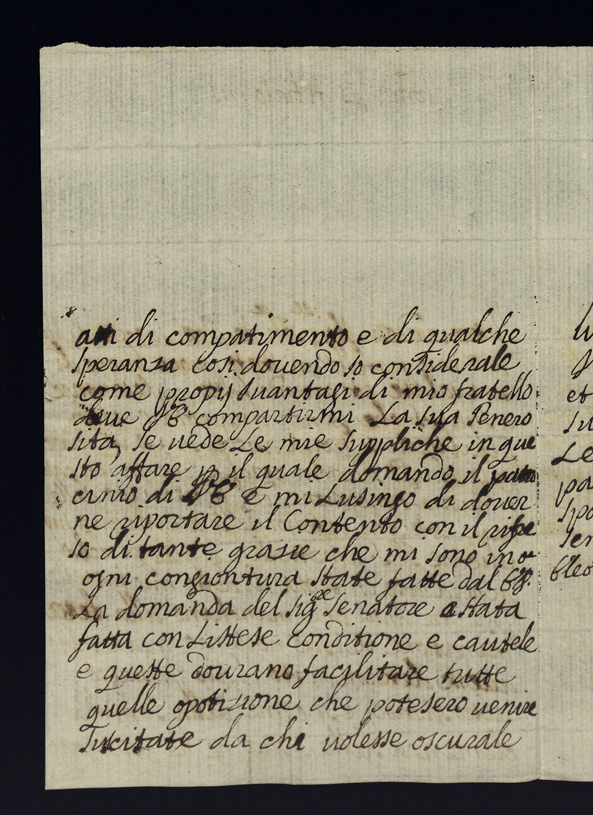 atti di compatimento e di qualche
speranza così dovendo io considerale
come propij suantagi di mio fratello
deue VE compartirmi La sua Genero
sità, se uede Le mie suppliche in que
sto affare p il quale domando il patro
cinio di VE e mi Lusingo di douer
ne riportare il Contento con il rifle
so di tante grasie che mi sono in
ogni congiontura state fatte dal
La domanda del Sig.re Senatore a stata
fatta con Listese conditione e cautele
e queste dourano facilitare tutte
quelle opotisione che potesero uenire
sucitate da chi uolesse oscurale
et
Le